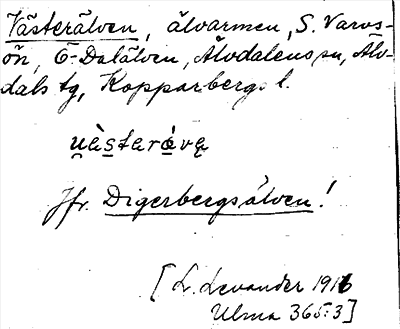 Västerälven, älvarmen, S. Varvs-
ön, Ö-Dalälven, Älvdalens sn, Älv-
dals tg, Kopparbergs l.
u̯às̱terávą
Jfr. Digerbergsälven!
[L. Levander 1916
Ulma 365:3]